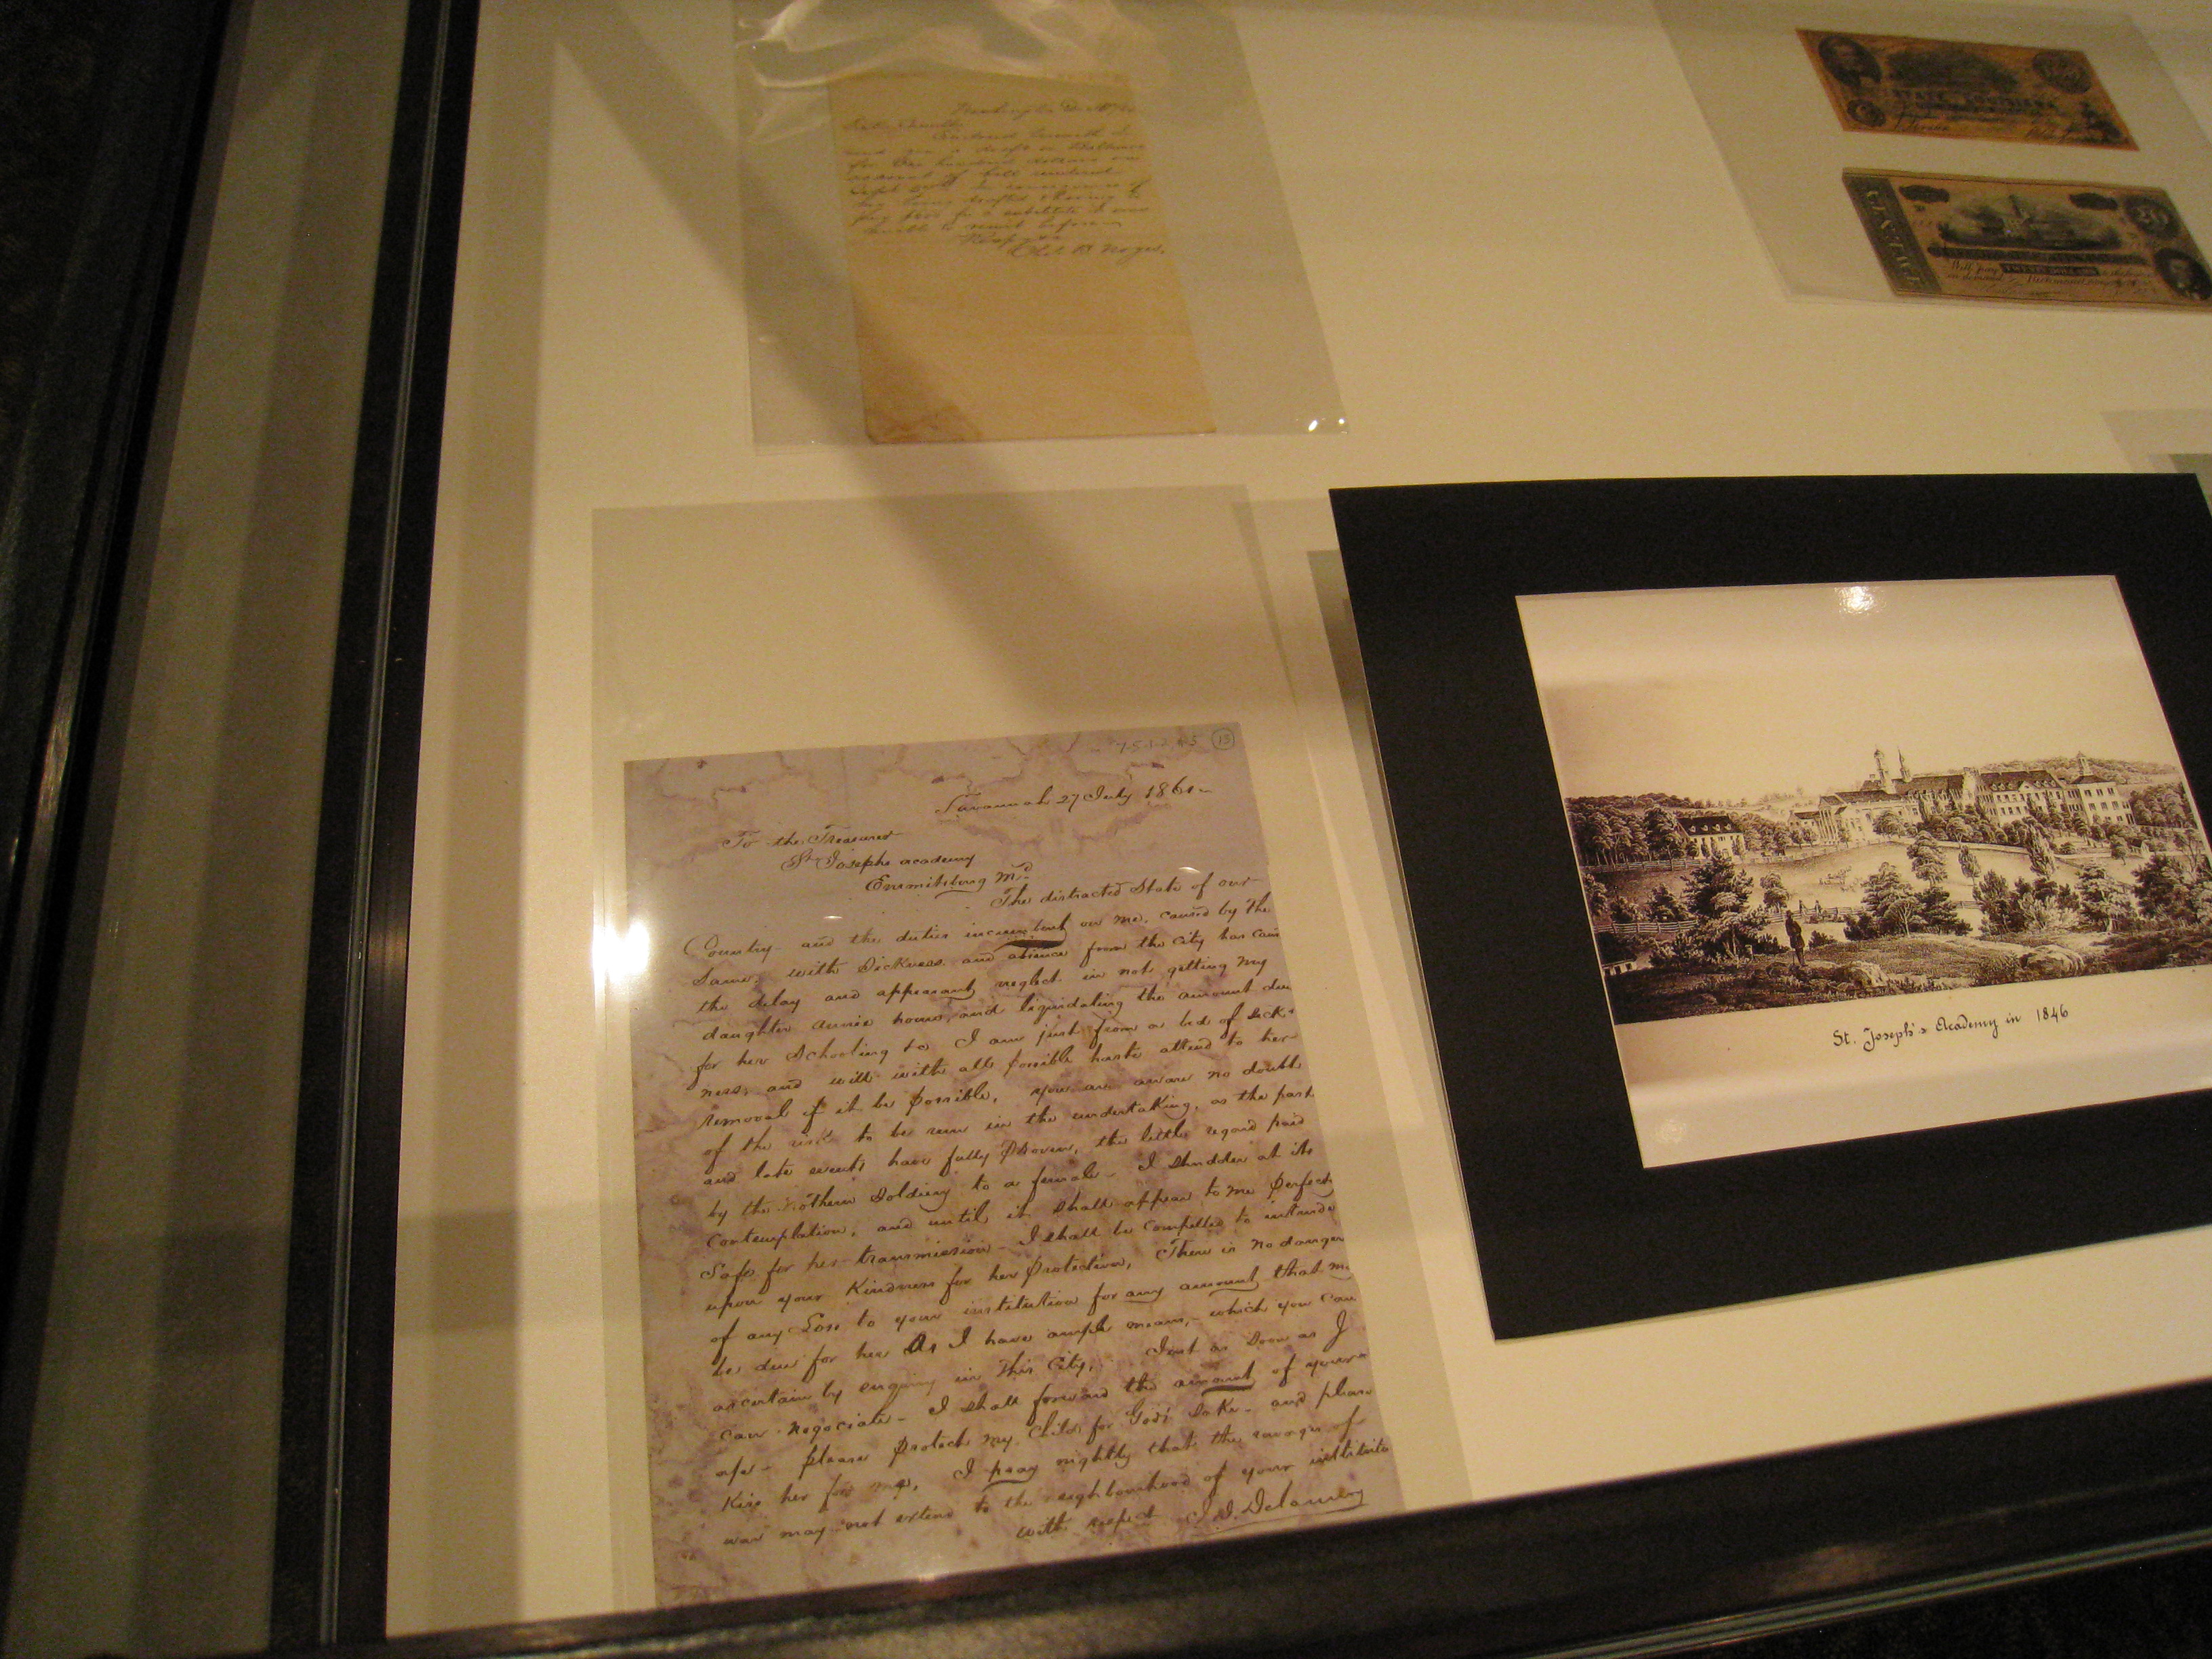 me a draft on Baltimore
for One hundred dollars on
account of bill rendered
being drafted & having to
pay for a substitute I was
unable to remit before
STATE OF LOUISIANA
Will pay TWENTY DOLLARS
Richmond
20
75-1-2, #5 (15)
Savannah 27 July 1861
To the Treasurer
St Josephs academy
Emmitsburg Md
The distracted State of our
Country and the duties incumbent on me, caused by the
Same, with Sickness and absence from the city has caus
the delay and appearant neglect in not getting my
daughter Annie home, and liquidating the amount due
for her Schooling &c I am just from a bed of sick-
ness, and will with all possible haste attend to her
removal if it be possible, you are aware no doubt
of the risk to be run in the undertaking, as the past
and late events have fully proven, the little regard paid
by the Nothern Soldiery to a female - I Shudder at its
Contemplation, and until it shall appear to me perfect
Safe for her transmission I shall be compelled to intrude
upon your Kindness for her protection, There is no danger
of any Loss to your institution for any amount that m
be due for her As I have ample means, which you can
ascertain by enquiry in this City, Just as Soon as I
can negociate - I shall forward the amount of yours
afs - please protect my Child for Gods Sake - and please
Kiss her for me, I pray nightly that the ravages of
war may not extend to the neighbourhood of your institutio
with respect J. D. Delanney
St. Joseph's Academy in 1846